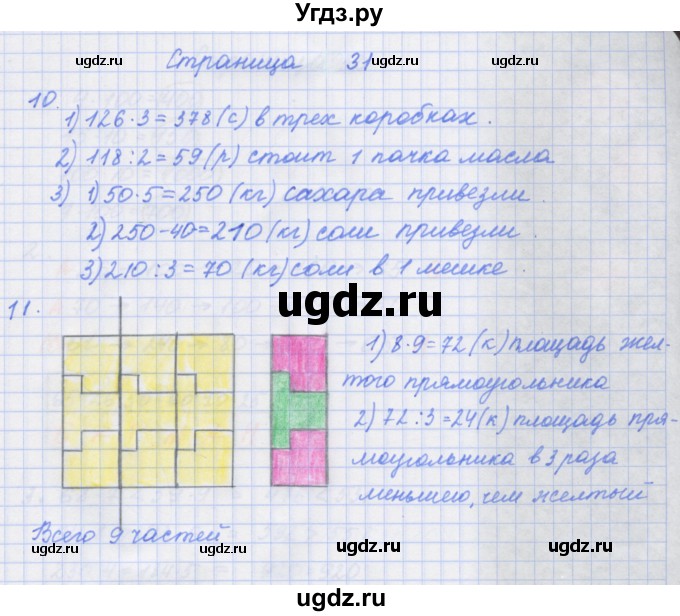 Угдз.ру
Страница 31
ugdz.ru ugdz.ru ugdz.ru
10.
1) 126·3=378(с) в трех коробках.
2) 118:2=59(р) стоит 1 пачка масла
3) 1) 50·5=250 (кг) сахара привезли.
ugdz.ru ugdz.ru
2) 250-40=210 (кг) соли привезли.
3) 210:3=70 (кг) соли в 1 мешке.
ugdz.ru
11.
1) 8·9=72 (к) площадь жел-
того прямоугольника
ugdz.ru ugdz.ru ugdz.ru
2) 72:3=24(к) площадь пря-
моугольника в 3 раза
меньшего, чем желтый
Всего 9 частей
ugdz.ru ugdz.ru ugdz.ru
ugdz.ru